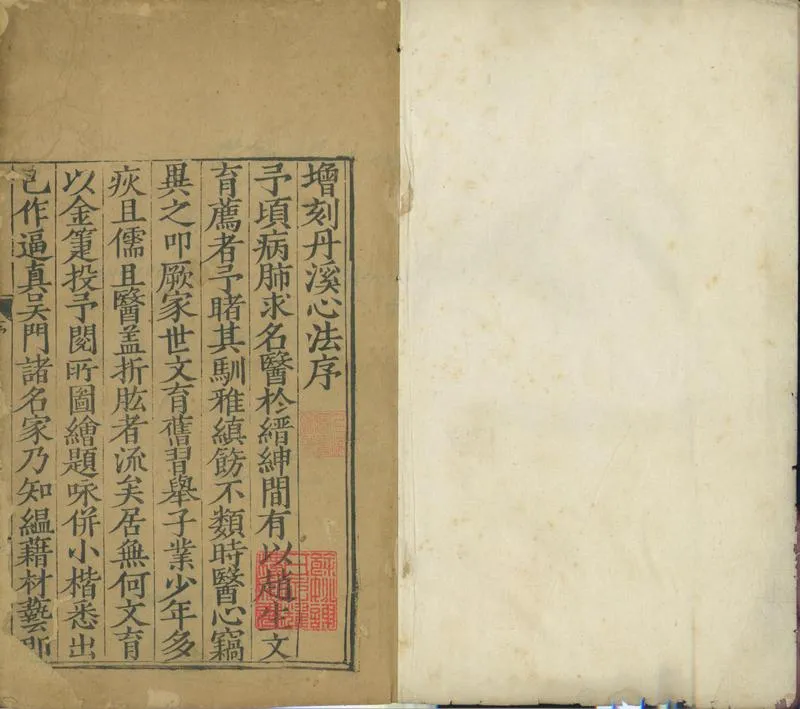 增刻丹溪心法序
予頃病肺求名醫於縉紳間有以趙生文
育薦者予睹其馴雅縝飭不類時醫心竊
異之叩厥家世文育舊習舉子業少年多
疾且儒且醫盖折肱者流矣居無何文育
以金箑投予閱所圖繪題咏併小楷悉出
己作逼真吳門諸名家乃知縕藉材藝